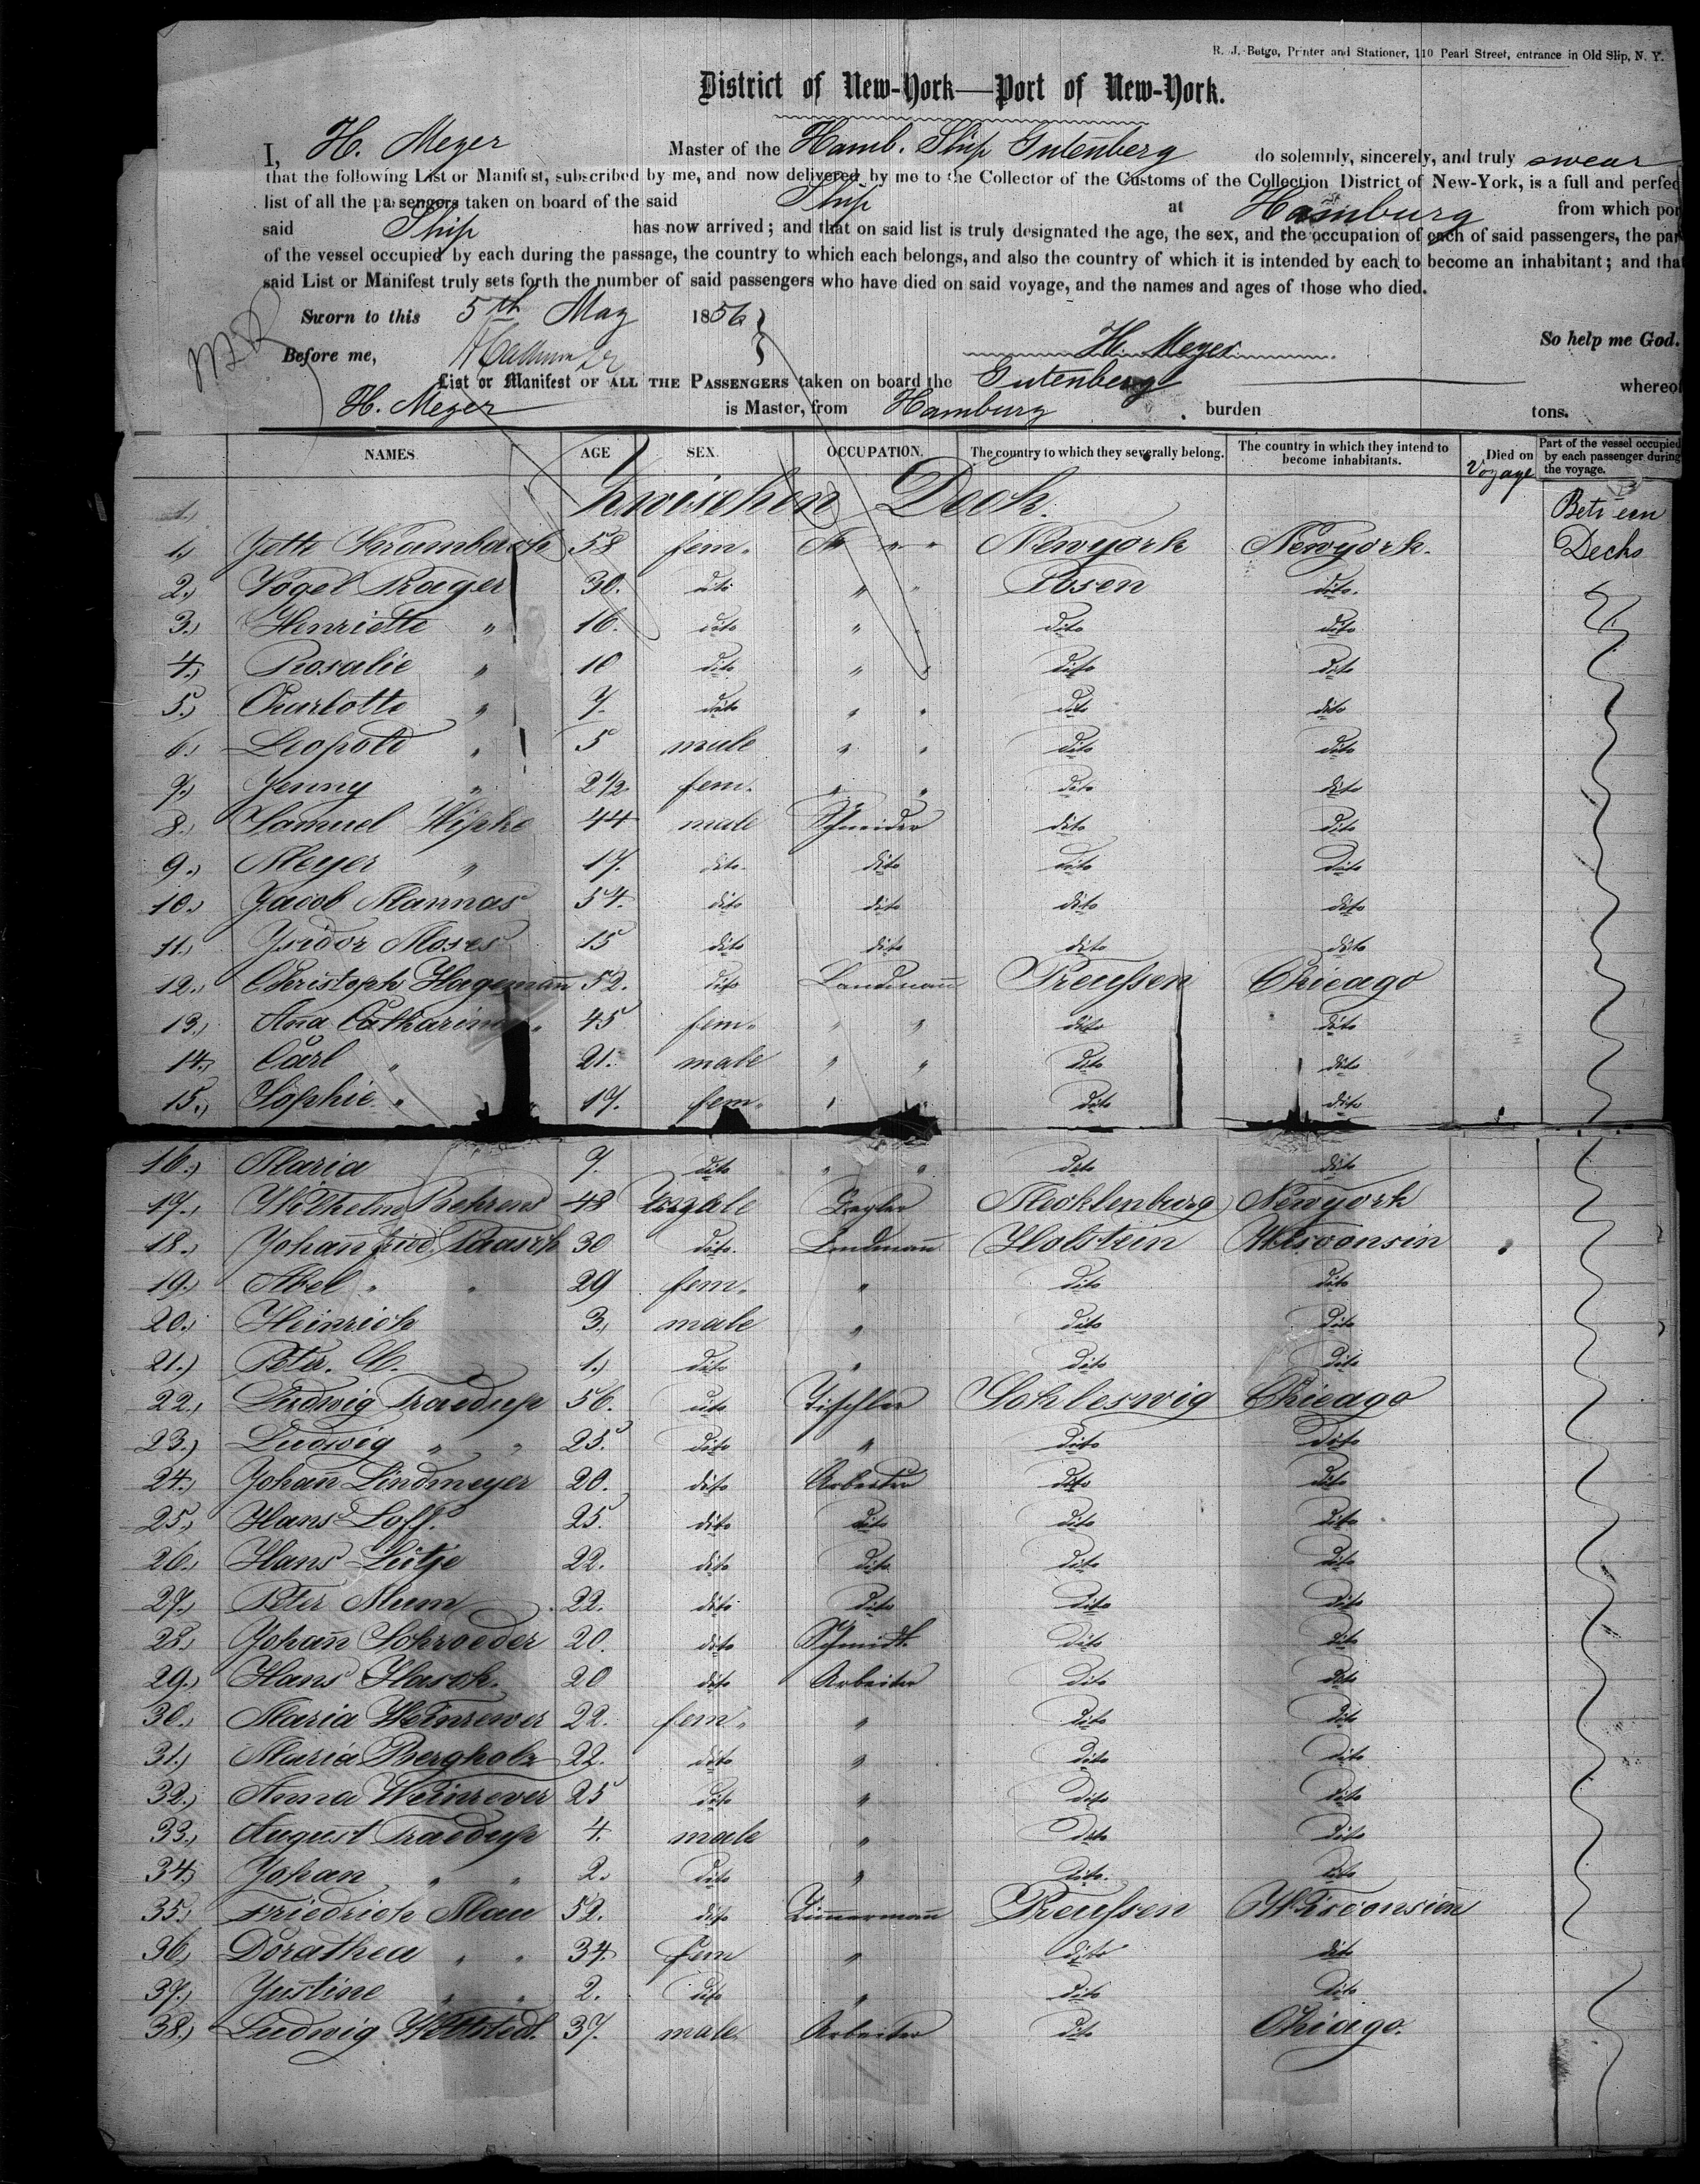 R. J. Betge, Printer and Stationer, 110 Pearl Street, entrance in Old Slip, N. Y.
District of New-York—Port of New-York.
I, H. Meyer Master of the Hamb. Ship Gutenberg do solemnly, sincerely, and truly swear
that the following List or Manifest, subscribed by me, and now delivered by me to the Collector of the Customs of the Collection District of New-York, is a full and perfec
list of all the passengers taken on board of the said Ship at Hamburg from which por
said Ship has now arrived; and that on said list is truly designated the age, the sex, and the occupation of each of said passengers, the par
of the vessel occupied by each during the passage, the country to which each belongs, and also the country of which it is intended by each to become an inhabitant; and that
said List or Manifest truly sets forth the number of said passengers who have died on said voyage, and the names and ages of those who died.
Sworn to this 5th May 1856
So help me God.
Before me, H. Meyer
List or Manifest OF ALL THE PASSENGERS taken on board the Gutenberg whereof
H. Meyer is Master, from Hamburg burden tons.
NAMES. AGE SEX. OCCUPATION. The country to which they severally belong. The country in which they intend to become inhabitants. Died on Voyage Part of the vessel occupied by each passenger during the voyage.
1.) Zwischen Deck. Between
1.) Jette Krambach 58 fem. " " Newyork Newyork. Decks
2.) Vogel Prager 30. dito " " Posen dito.
3.) Henriette " 16. dito " " dito dito
4.) Rosalie " 10 dito " " dito dito
5.) Charlotte " 7. dito " " dito dito
6.) Leopold " 5 male " " dito dito
7.) Jenny " 2 1/2. fem. " " dito dito
8.) Samuel 44 male Schneider dito dito
9.) Meyer " 17. dito dito dito dito
10.) Jacob Mannas 54. dito dito dito dito
11.) Isidor Moses 15 dito dito dito dito
12.) Christoph Hagemann 52. dito Landmann Preussen Chicago
13.) Ana Catharina " 45 fem. " " dito dito
14.) Carl " 21. male " " dito dito
15.) Sophie " 17. fem. " " dito dito
16.) Maria 7. dito " " dito dito
17.) Wilhelm Behrens 48 male Mecklenburg Newyork
18.) Johann Fried. Paasch 30 dito. Landmann Holstein Wisconsin
19.) Abel " " 29 fem. " dito dito
20.) Heinrich 3. male " dito dito
21.) Peter. 1.) dito " dito dito
22.) Ludwig Traedup 56. dito Tischler Schleswig Chicago
23.) Ludwig " " 25. dito " dito dito
24.) Johann Lindmeyer 20. dito Arbeiter dito dito
25.) Hans Loff. 25. dito dito dito dito
26.) Hans Lütje 22. dito dito dito dito
27.) Peter Mum 22. dito dito dito dito
28.) Johann Schroeder 20. dito Schmidt. dito dito
29.) Hans Hasch. 20 dito Arbeiter dito dito
30.) Maria Weinrewer 22. fem. " dito dito
31.) Maria Bergholz 22. dito " dito dito
32.) Anna Weinrever 25 dito " dito dito
33.) August Traedup 4. male " dito dito
34.) Johan " " 2. dito " dito. dito
35.) Friedrich Mau 52. dito Zimmermann Preussen Wisconsin
36.) Dorathea " " 34. fem " dito dito
37.) Justine " " 2. dito " dito dito
38.) Ludwig 37. male Arbeiter dito Chicago.